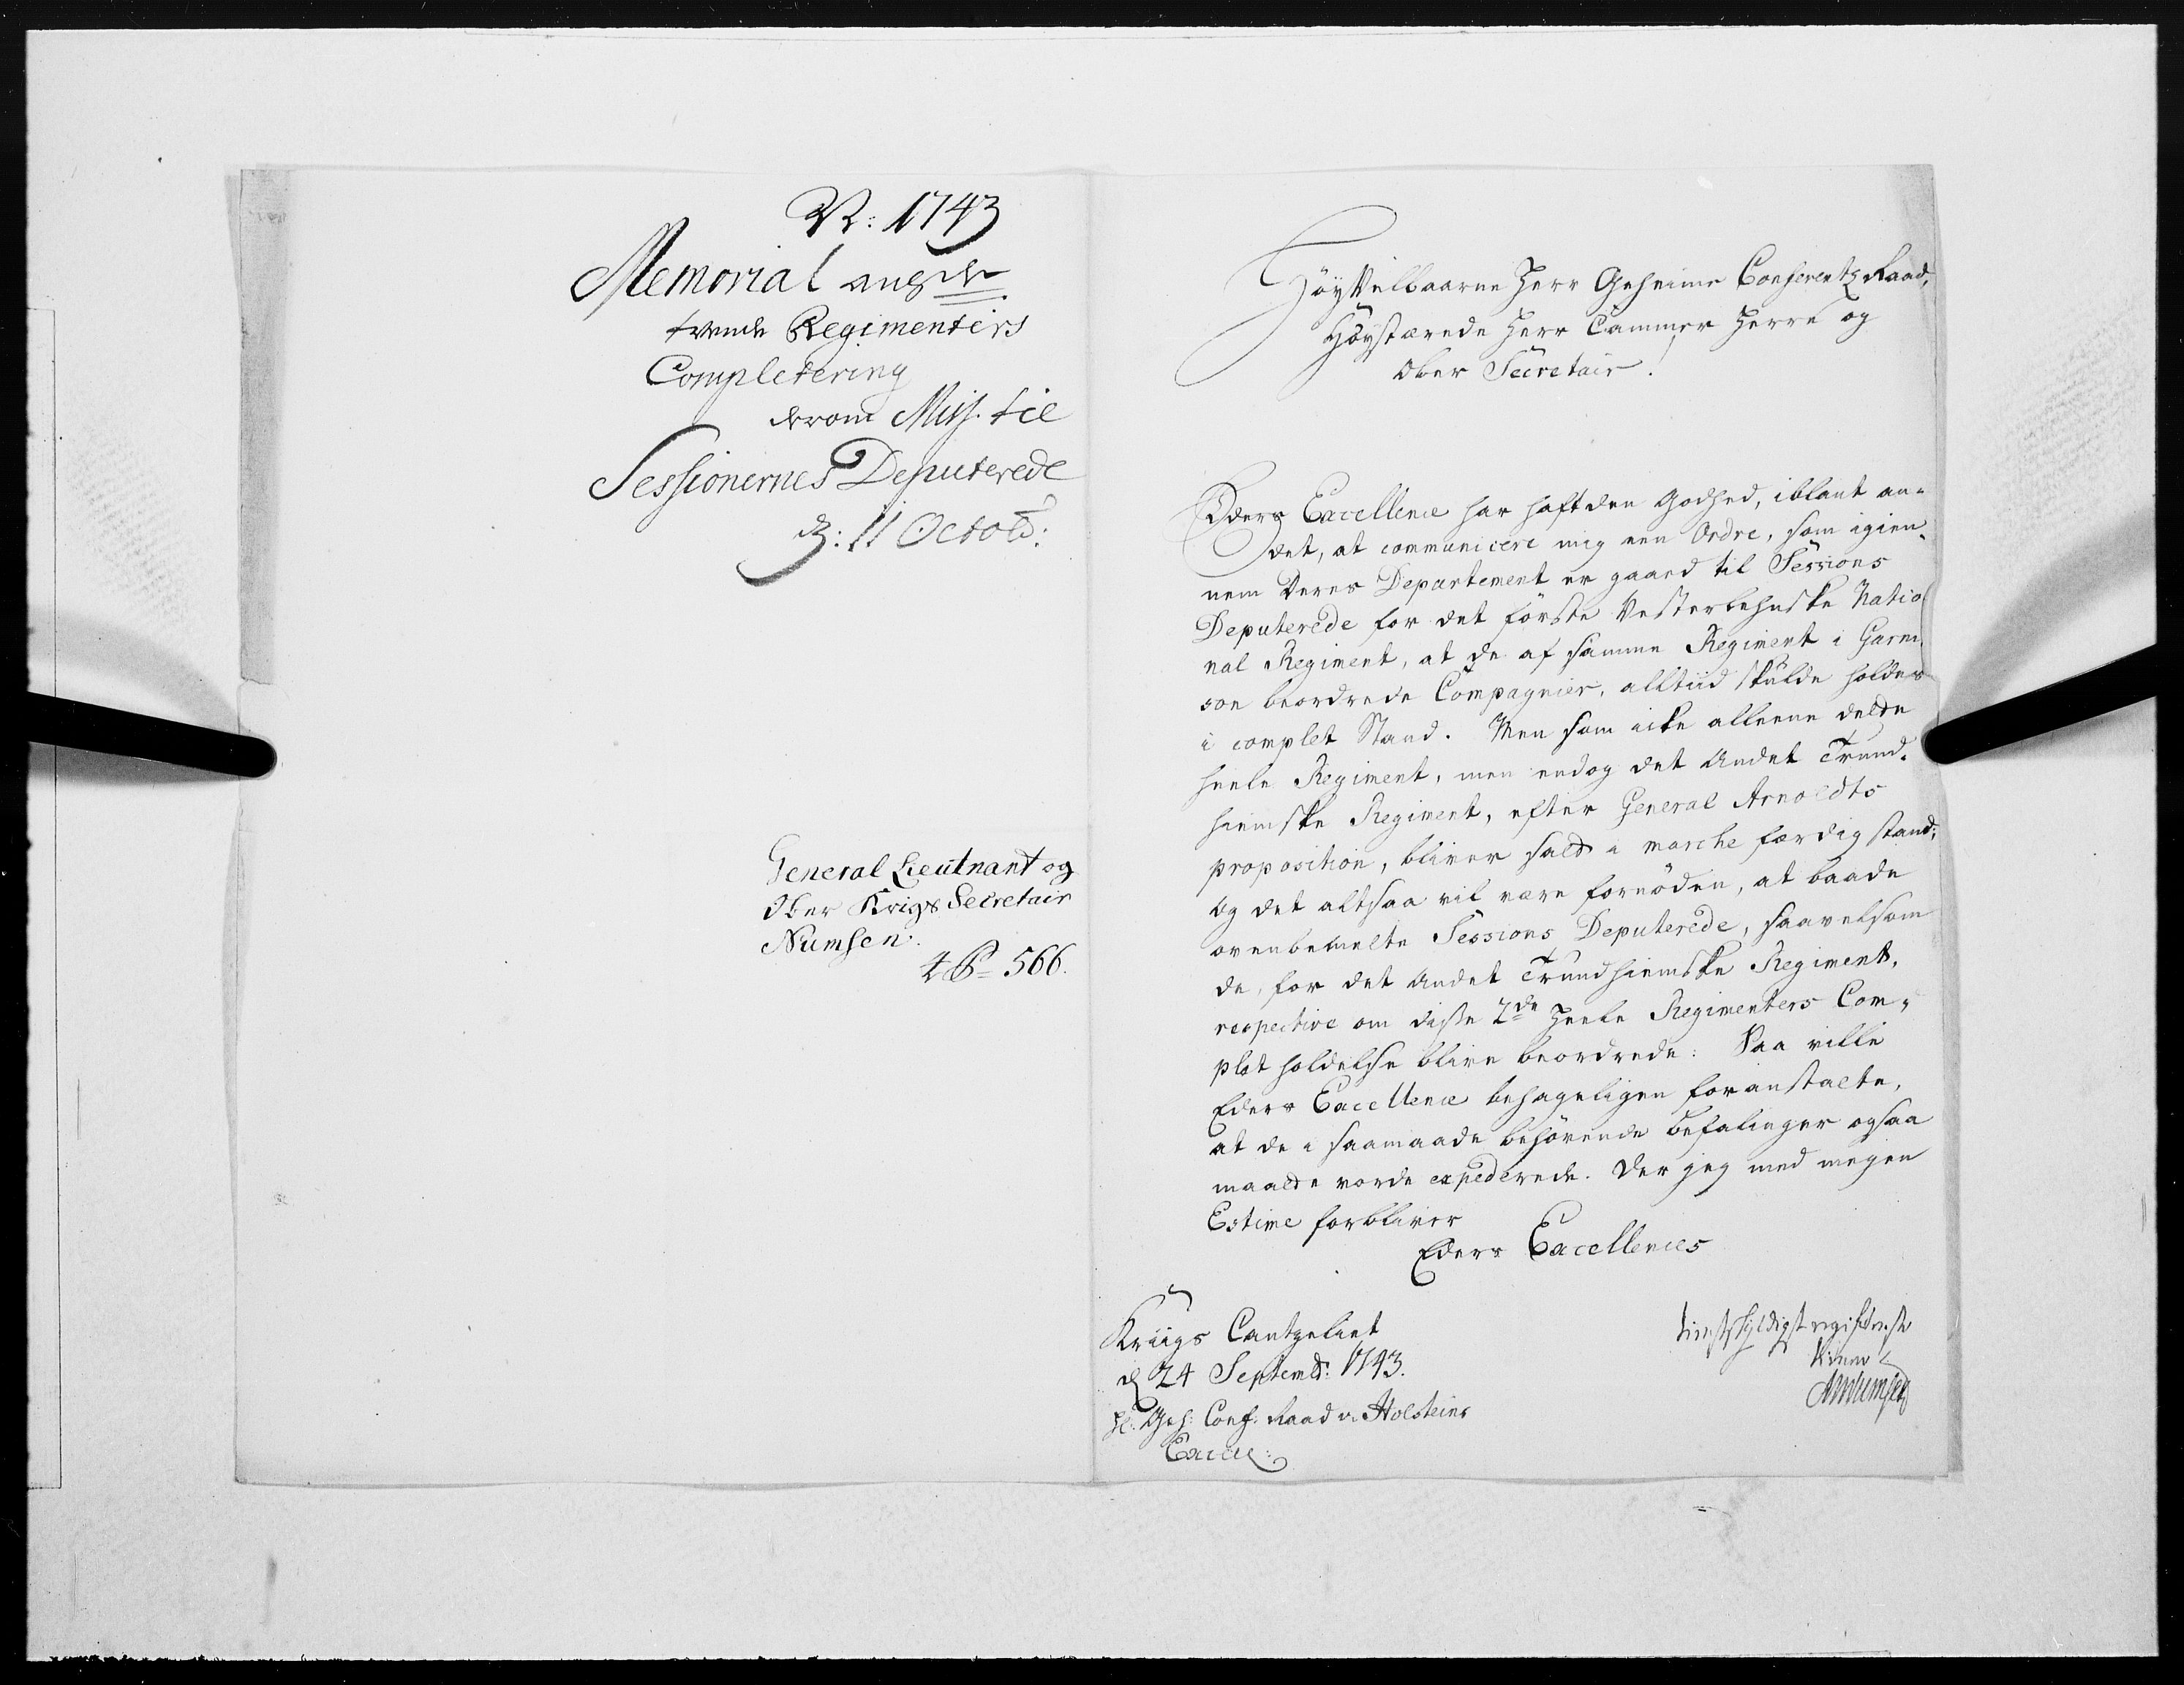 N: 1743
Memorial ang:de
tvende Regimenters
Completering
derom Miss. til
Sessionernes Deputerede
d: 11 Octob:
General Lieutnant og
Ober Krigs Secretair
Numsen.
566.
HöyVelbaarne Herr Geheime Conferentz Raad,
Höystærede Herr Cammer Herre og
Ober Secretair!
Eders Excellence har haft den Godhed, iblant an-
det, at communicere mig een Ordre, som igien-
nem Deres Departement er gaaed til Sessions
Deputerede for det förste Vesterlehnske Natio
nal Regiment, at de af samme Regiment i Garni
son beordrede Compagnier, alltiid skulde holdes
i complet Stand. Men som icke alleene dette
heele Regiment, men endog det Andet Trund-
hiemske Regiment, efter General Arnoldts
proposition, bliver sadt i marche færdig stand;
Og det altsaa vil være fornöden, at baade
ovenbemelte Sessions Deputerede, saavelsom
de, for det Andet Trundhiemske Regiment,
respective om disse 2de heele Regimenters Com-
plet holdelse blive beordrede: Saa ville
Eders Excellence behageligen foranstalte,
at de i saamaade behörende befalinger ogsaa
maatte vorde expederede. Der jeg med megen
Estime forbliver
Eders Excellences
Kriigs Cantzeliet
d 24 Septemb: 1743.
tienstskyldigst
tiener
Numsen
Hr: Geh: Conf: Raad v. Holsteins
Excell: